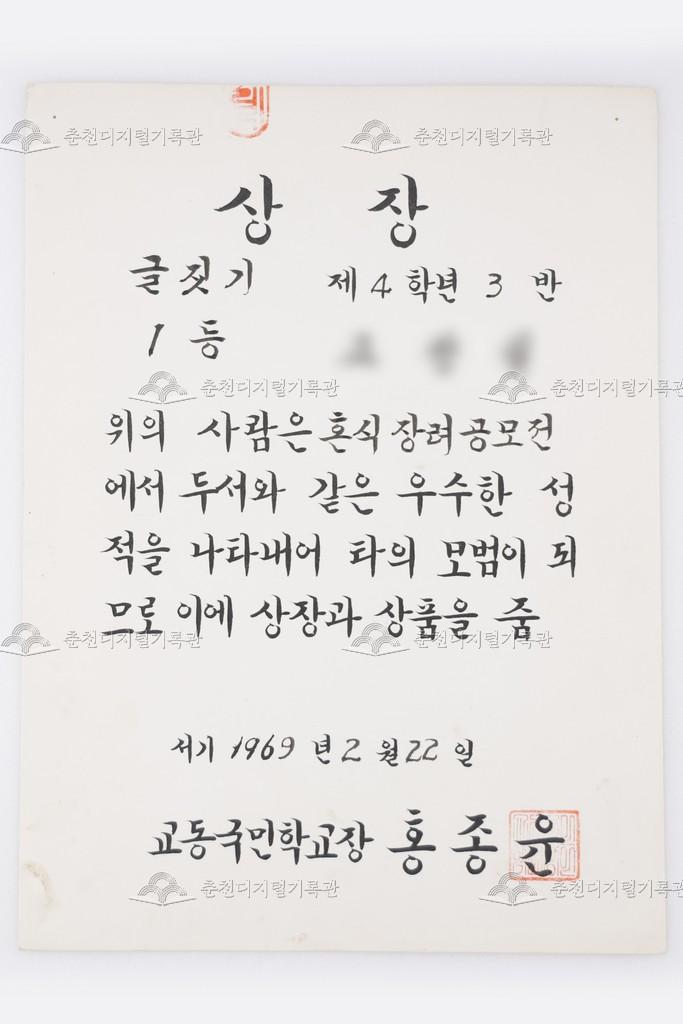 상 장
글짓기 제4학년 3 반
1 등
위의 사람은 혼식장려공모전
에서 두서와 같은 우수한 성
적을 나타내어 타의 모범이 되
므로 이에 상장과 상품을 줌
서기 1969 년 2 월 22 일
교동국민학교장 홍종윤
춘천디지털기록관
춘천디지털기록관
춘천디지털기록관
춘천디지털기록관
춘천디지털기록관
춘천디지털기록관
춘천디지털기록관
춘천디지털기록관